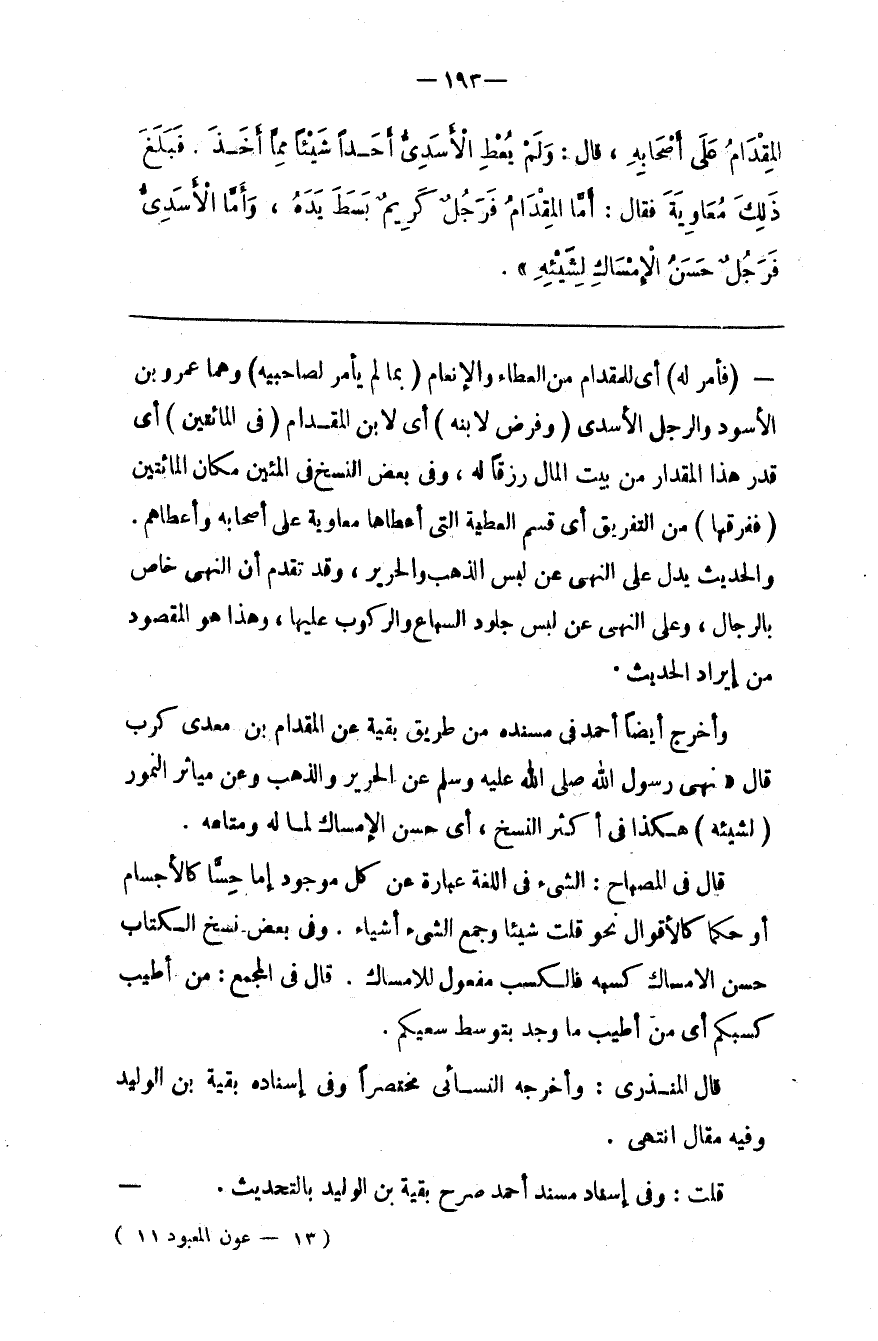 — ١٩٣ —
المِقْدَامُ عَلَى أَصْحَابِهِ ، قال : وَلَمْ يُعْطِ الْأَسَدِىُّ أَحَـداً شَيْئاً مِمَّا أَخَـذَ . فَبَلَغَ
ذَلِكَ مُعَاوِيَةَ فقال : أَمَّا المِقْدَامُ فَرَجُلٌ كَرِيمٌ بَسَطَ يَدَهُ ، وَأَمَّا الْأَسَدِىُّ
فَرَجُلٌ حَسَنُ الْإِمْسَاكِ لِشَيْئِهِ » .
— (فأمر له) أى للمقدام من العطاء والإنعام ( بما لم يأمر لصاحبيه) وهما عمرو بن
الأسود والرجل الأسدى ( وفرض لابنه ) أى لابن المقـدام ( فى المائتين ) أى
قدر هذا المقدار من بيت المال رزقاً له ، وفى بعض النسخ فى المئين مكان المائتين
( ففرقها ) من التفريق أى قسم العطية التى أعطاها معاوية على أصحابه وأعطاهم .
والحديث يدل على النهى عن لبس الذهب والحرير ، وقد تقدم أن النهى خاص
بالرجال ، وعلى النهى عن لبس جلود السباع والركوب عليها ، وهذا هو المقصود
من إيراد الحديث .
وأخرج أيضاً أحمد فى مسنده من طريق بقية عن المقدام بن معدى كرب
قال « نهى رسول الله صلى الله عليه وسلم عن الحرير والذهب وعن مياثر النمور
( لشيئه ) هـكذا فى أكثر النسخ ، أى حسن الإمساك لمـا له ومتاعه .
قال فى المصباح : الشىء فى اللغة عبارة عن كل موجود إما حِسًّا كالأجسام
أو حكما كالأقوال نحو قلت شيئا وجمع الشىء أشياء . وفى بعض نسخ الـكتاب
حسن الامساك كسبه فالـكسب مفعول للامساك . قال فى المجمع : من أطيب
كسبكم أى من أطيب ما وجد بتوسط سعيكم .
قال المنـذرى : وأخرجه النسـائى مختصراً وفى إسناده بقية بن الوليد
وفيه مقال انتهى .
قلت : وفى إسناد مسند أحمد صرح بقية بن الوليد بالتحديث . —
( ١٣ — عون المعبود ١١ )